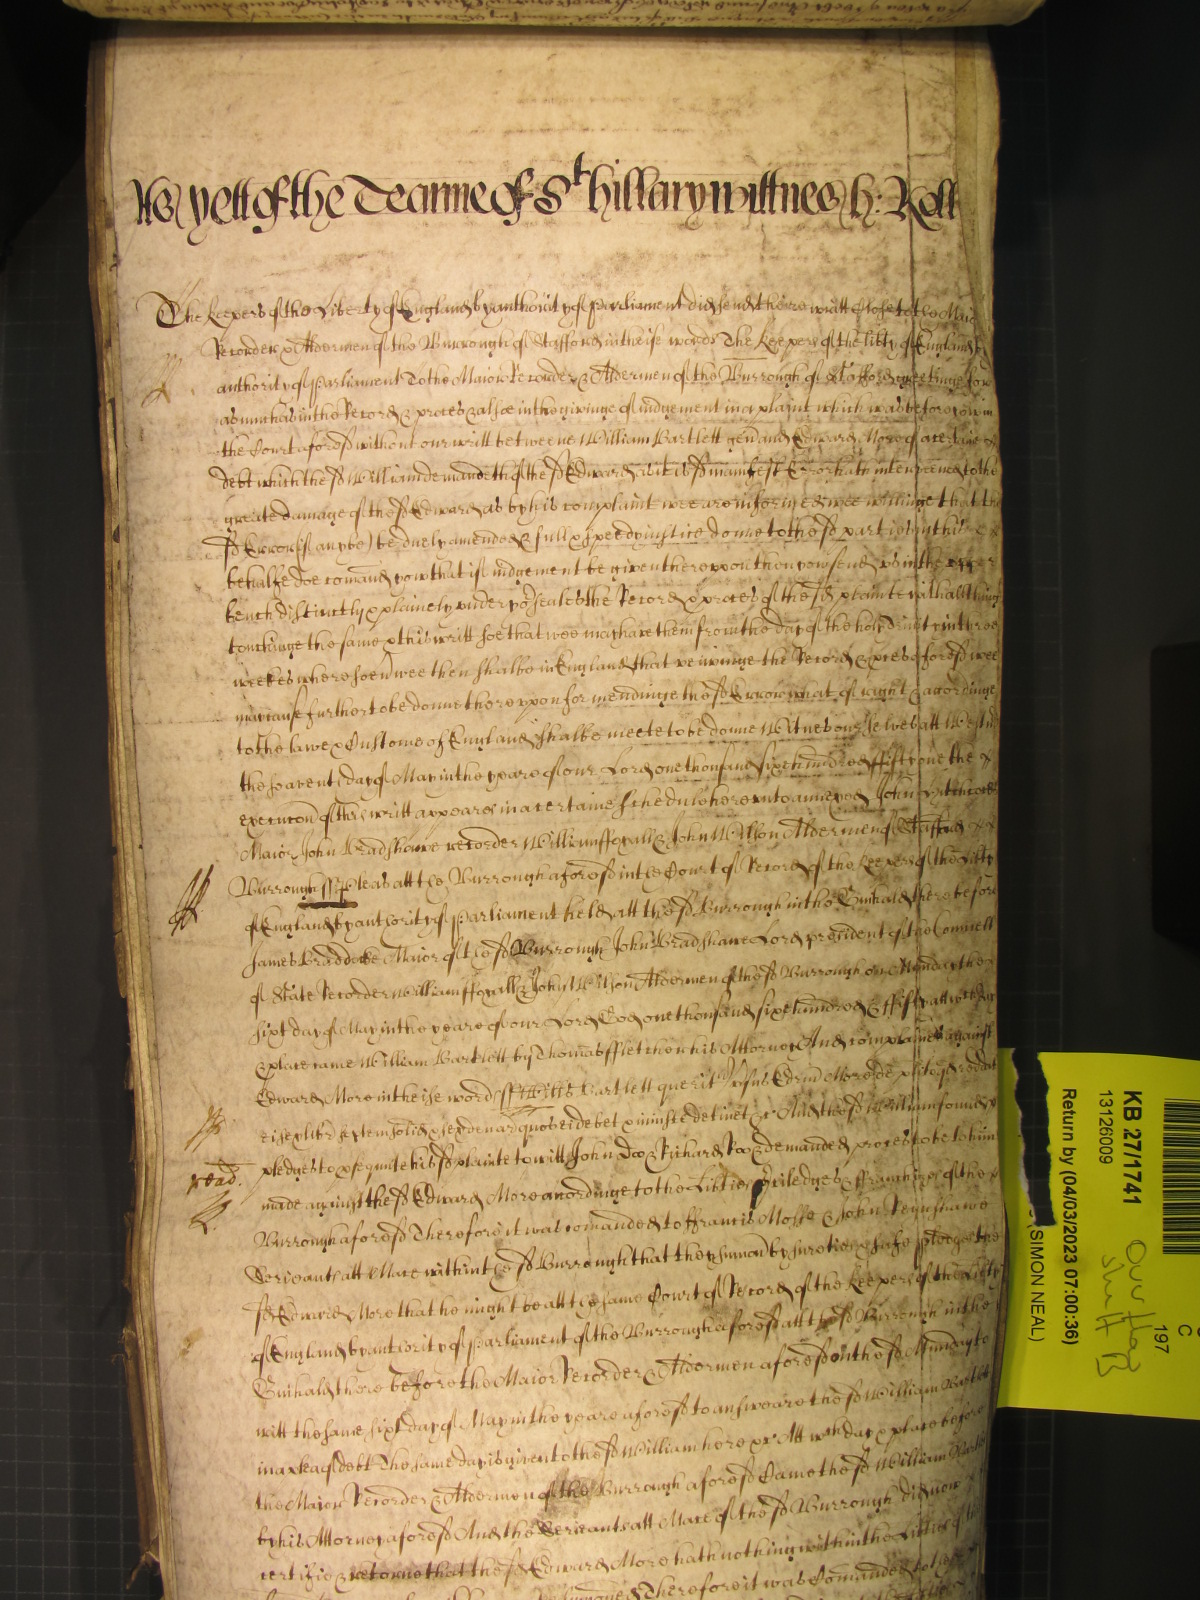 As yett of the Tearme of St hillary wittnes h: Roll
The Keepers of the Liberty of England by authority of Parliament did send there writt close to the Maior
Recorder & Aldermen of the Burrough of Stafford in theise words The Keepers of the lib̃ty of England by
authority of Parliament To the Maior Recorder & Aldermen of the Burrough of Stafford greetinge for
asmuch as in the Record & proces & alsoe in the givinge of iudgement in a plaint which was before you in
the Court aforesd without our writt betweene William Bartlett gent and Edward More of a certaine
debt which the sd William demandeth of the sd Edward as it is sd manifest Error hath intervened to the
greate damage of the sd Edward as by his complaint wee are informed wee willinge that the
sd Error (if any be) be duely amended & full & speedy iustice donne to the sd parties in this
behalfe doe comand you that if iudgement be given thereuppon then you send us in the upper
bench distinctly & plainely under yor seales the Record & proces of the sd plaint with all things
touchinge the same & this writt soe that wee may have them from the day of the holy Trinity in three
weekes wheresoever wee then shalbe in England that veiwinge the Record & proces aforesd wee
may cause further to be donne thereuppon for mendinge the sd Error what of right & accordinge
to the lawe & Custome of England shalbe meete to be donne Witnes our selves att Westm̃
the seaventh day of May in the yeare of our Lord one thousand six hundred fifty one the
execuc̃on of this writt appeares in a certaine schedule hereunto annexed John
Maior John Bradshawe recorder William ffowall & John Willson Aldermen of Stafford
Burrough ss Pleas att the Burrough aforesd in the Court of Record of the Keepers of the lib̃ty
of England by authority of Parliament held att the sd Burrough in the Guihald there before
James Braddocke Maior of the sd Burrough John Bradshawe Lord president of the Councell
of State Recorder William ffowall & John Willson Aldermen of the sd Burrough on Munday the
sixt day of May in the yeare of our Lord God one thousand six hundred & fifty att which day
& place came William Bartlett by Thomas ffletcher his Attorney And complaines against
Edward More in theise words ss Will̃s Bartlett querit̃ versus Edrũ More de plito qd reddat
ei sex libr̃ septem solid & sex denar quos ei debet & iniuste detinet &c And the sd William found
pledges to &secute his sd plainte to witt John Doo & Richard Roo & demanded proces to be to him
read.
made against the sd Edward More accordinge to the Lib̃ties Priviledges & ffranchises of the
Burrough aforesd Therefore it was comanded to ffrancis Mosse & John Renshawe
Serieants att Mace within the sd Burrough that they sumond by sureties & safe pledges the
sd Edward More that he might be att the same Court of Record of the Keepers of the Lib̃ty
of England by authority of Parliament of the Burrough aforesd att the sd Burrough in the
Guihald there before the Maior Recorder & Aldermen aforesd on the sd Munday to
witt the same sixt day of May in the yeare aforesd to answeare the sd William Bartlett
in a plea of debt The same day is given to the sd William here &c Att which day & place before
the Maior Recorder & Aldermen of the Burrough aforesd Came the sd William Bartlett
by his Attorney aforesd And the Serieants att Mace of the sd Burrough did now
certifie & retorne that the sd Edward More hath nothing within the Lib̃ties of the
Therefore it was Comanded to the
KB 27/1741
13126009
Return by (04/03/2023 07:00:36)
(SIMON NEAL)
197
C